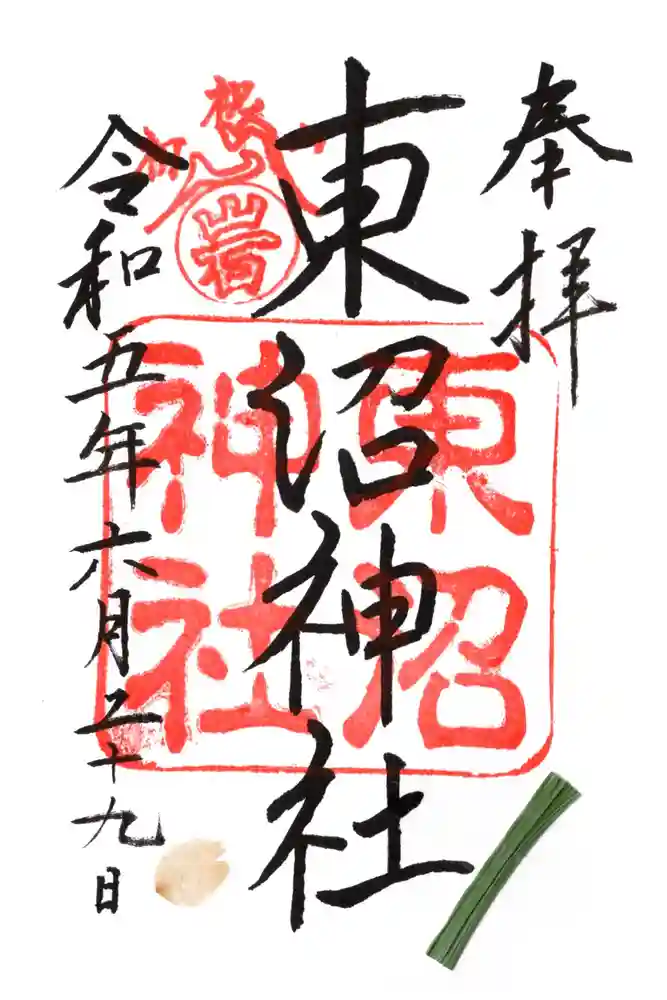 奉拝
東沼神社
東沼
神社
令和五年六月二十九日